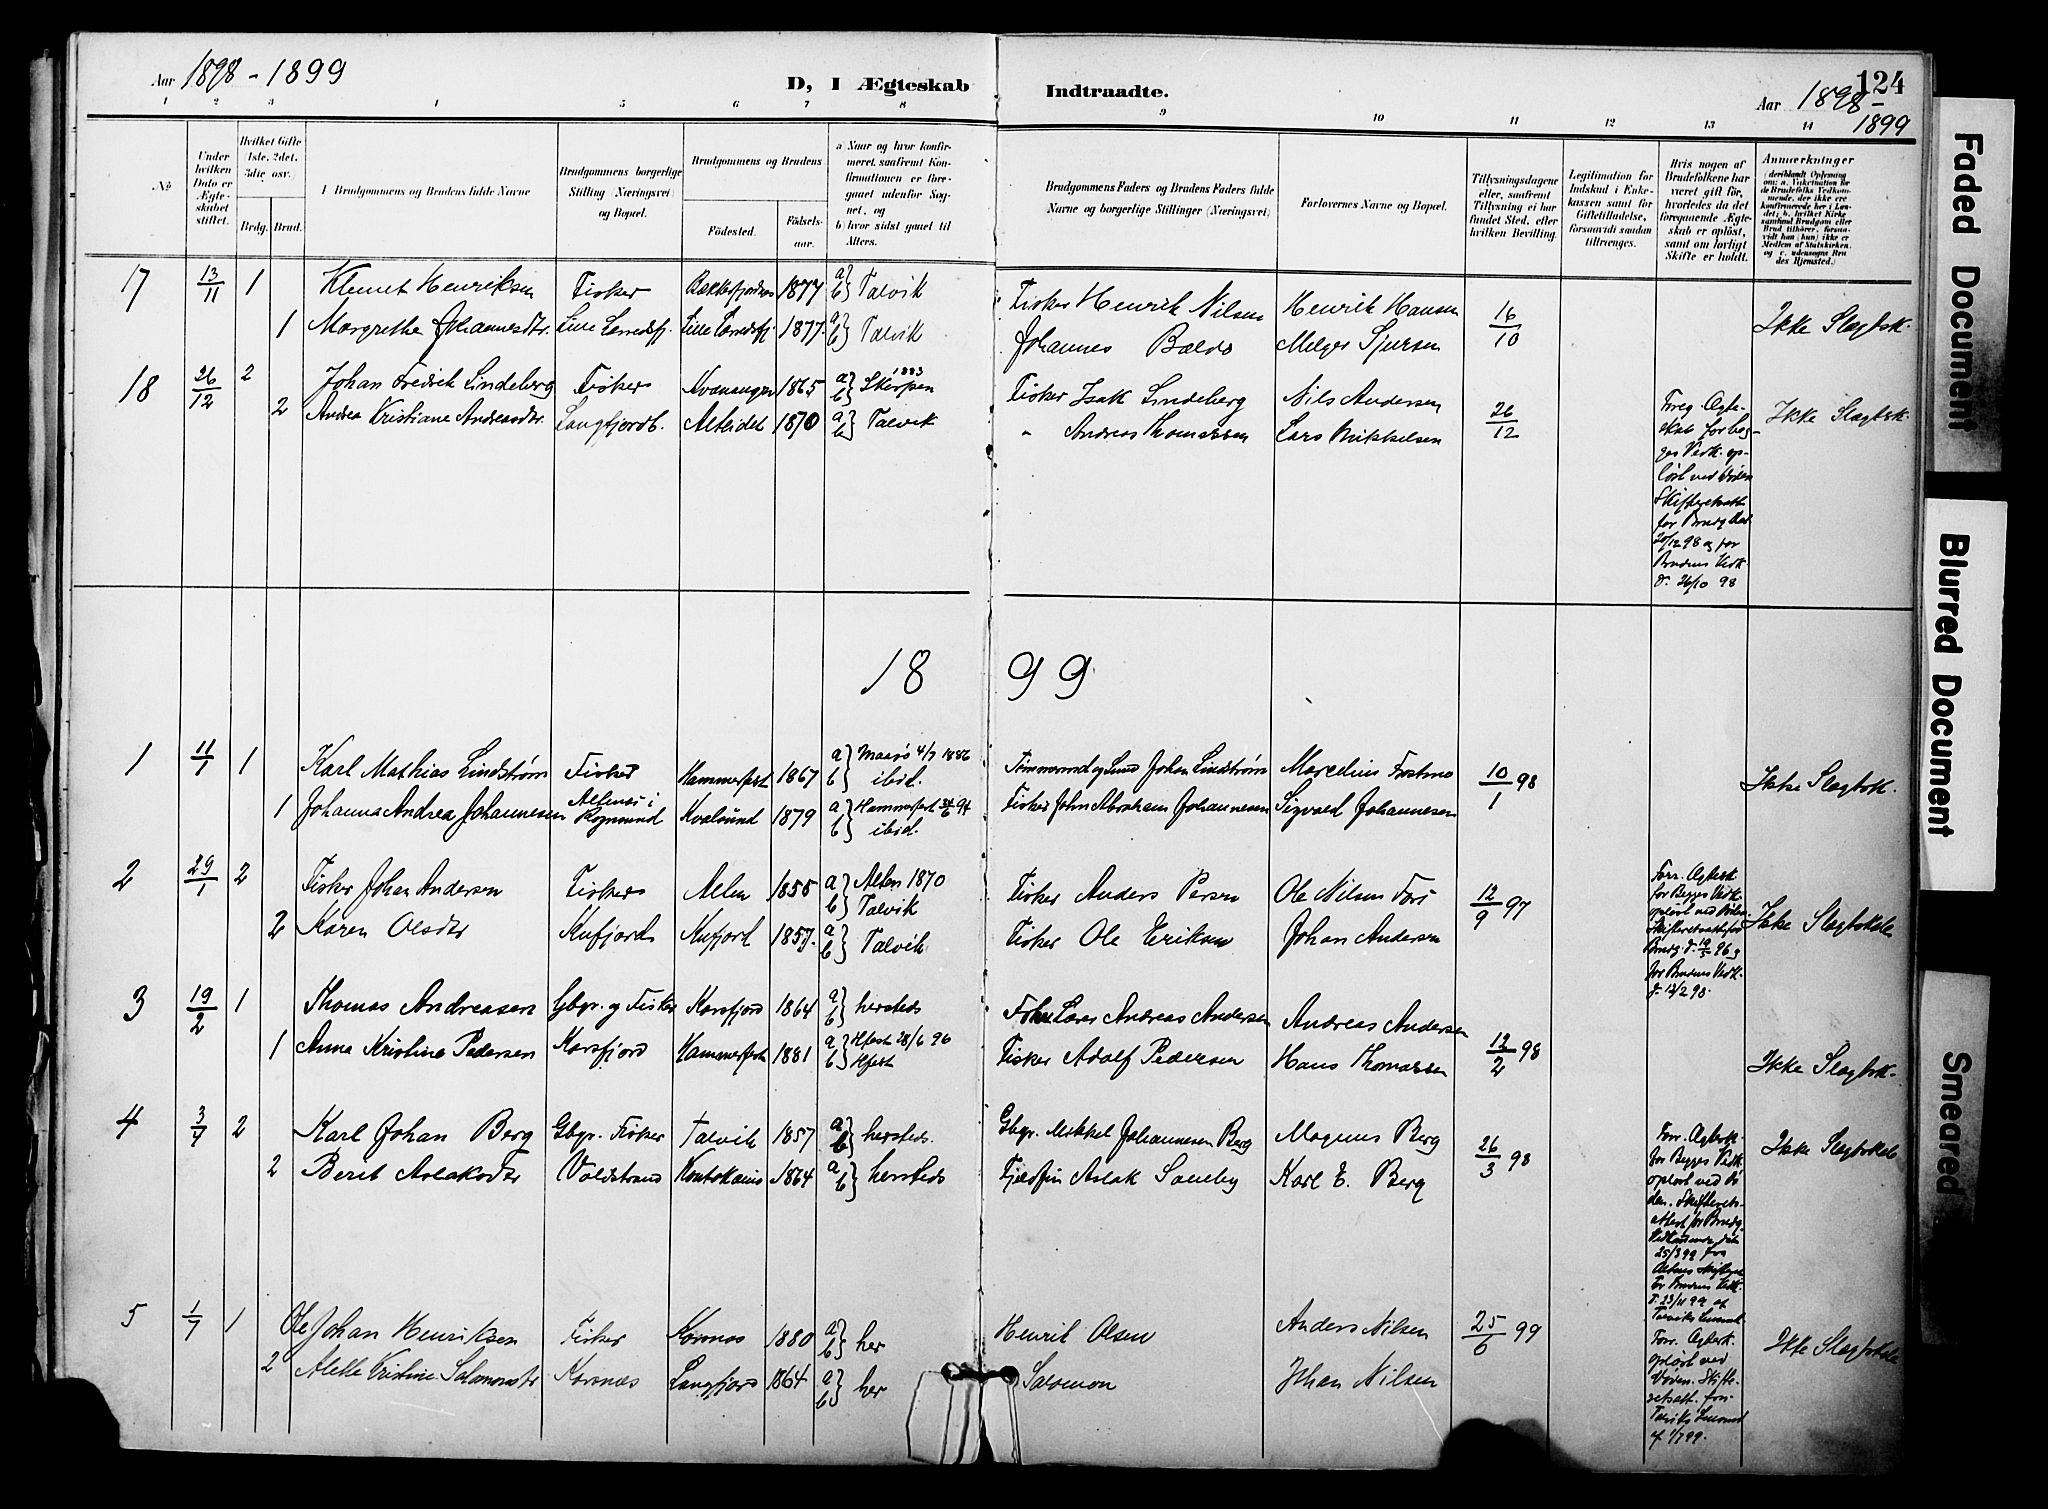 Aar 1898-1899
D, I Ægteskab Indtraadte.
124
Aar 1898-
1899
1 2 3 4 5 6 7 8 9 10 11 12 13 14
No
Under hvilken Dato er Ægteskabet stiftet.
Hvilket Gifte 1ste, 2det, 3die osv.)
Brdg. Brud.
Brudgommens og Brudens fulde Navne
Brudgommens borgerlige Stilling Næringsvei) og Bopæl.
Brudgommens og Brudens
Födested.
Födselsaar.
a Naar og hvor konfirmeret, saafremt Konfirmationen er foregaaet udenfor Sognet, og
b) hvor sidst gaaet til Alters.
Brudgommens Faders og Brudens Faders fulde Navne og borgerlige Stillinger (Næringsvei)
Forlovernes Navne og Bopæl.
Tillysningsdagene eller, saafremt Tillysning ei har fundet Sted, efter hvilken Bevilling.
Legitimation for Indskud i Enkekassen samt for Giftetilladelse, forsaavidt saadan tiltrænges.
Hvis nogen af Brudefolkene har været gift før, hvorledes da det foregaaende Ægteskab er opløst, samt om lovligt Skifte er holdt.
Anmærkninger
17 13/11 1 Klemet Henriksen Fisker 1877 a) b) Talvik Fisker Henrik Nilsen Henrik Hansen 16/10
1 Margrethe Johannesdtr. Lille Lerredsfj. Lille Lerredsfj. 1877 a) b) Talvik Johannes Balds Melger Sjursen Ikke Slægtsk.
18 26/12 2 Johan Fredrik Lindeberg Fisker Kvænangen 1865 a) b) 1883 Skerpen Tisker Isak Lindeberg Nils Andersen 26/12
2 Andrea Kristiane Andreasdtr. Langfjordb. Alteidet 1870 a) b) Talvik " Andreas Thomassen Lars Mikkelsen Ikke Slægtsk.
Foreg. Ægte-
skab for beg-
ges Vedk. op-
løst ved Døden
Skifteretsatt.
for Brudg. dat.
20/12 98 og for
Brudens Vedk.
d. 26/10 98
18 99
1 11/1 1 Karl Mathias Lindstrøm Fisker Hammerfest 1867 a) b) Maasø 4/7 1886 ibid. Johan Lindstrøm 10/1 98
1 Johanna Andrea Johannesen Kvalsund 1879 a) b) Hammerfest 94 ibid. Fisker John Abraham Johannesen Sigvald Johannesen Ikke Slægtsk.
2 29/1 2 Fisker Johan Andersen Fisker Alten 1855 a) Alten 1870 b) Talvik Fisker Anders Persen Ole Nilsen 12/9 97
2 Karen Olsdtr Kufjord Kufjord 1857 a) b) Talvik Fisker Ole Eriksen Johan Andersen Ikke Slægtskab
Forr. Ægtesk.
for Begges Vedk.
opløst ved Døden
for Brudens Vedk.
d. 12/2 98.
3 19/2 1 Thomas Andreasen Gbgr. og Fisker Korsfjord 1864 a) b) hersteds Andreas Andersen Andreas Andersen 12/2 98
1 Anna Kristine Pedersen Korsfjord Hammerfest 1881 a) Hfest 28/6 96 b) Hfest Fisker Adolf Pedersen Hans Thomassen Ikke Slægtsk.
4 3/4 2 Karl Johan Berg Gbgr. Fisker Talvik 1857 a) b) hersteds. Gbgr. Mikkel Johannesen Berg Magnus Berg 26/3 98
2 Berit Aslaksdtr Voldstrand Koutokeino 1864 a) b) hersteds Fjeldfin Aslak Somby Karl E. Berg Ikke Slægtskab
Forr. Ægtesk.
for Begges Vedk.
opløst ved Dø-
den. Skifterets-
attest for Brudg.
25/3 99 fra
For Brudens Vedk.
d. 23/11 94 af
5 1/7 1 Ole Johan Henriksen Fisker Korsnes 1880 a) b) her Henrik Olsen Anders Nilsen 25/6 99
2 Alette Kristine Salamonsdtr Korsnæs Langfjord 1864 a) b) her Salomon Johan Nilsen Ikke Slægtskab
Forr. Ægtesk.
opløst ved
Døden. Skifte-
retsatt. fra
af 1/7 99.
Faded Document
Blurred Document
Smeared